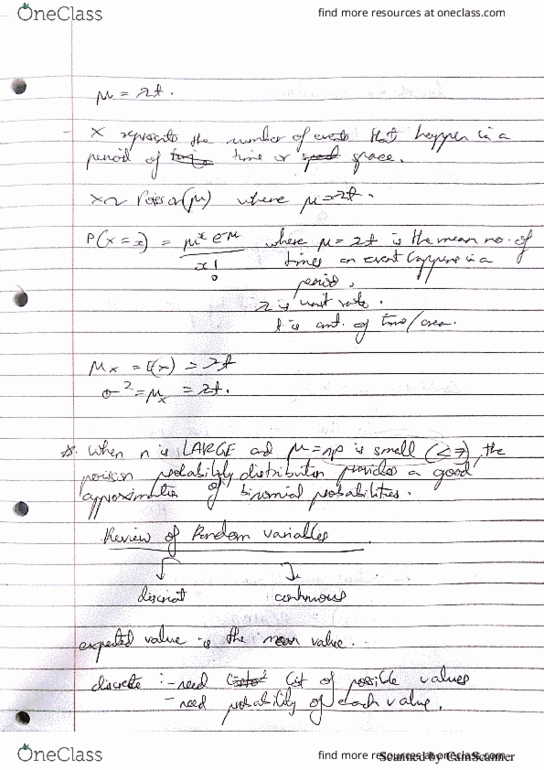 OneClass
find more resources at oneclass.com
μ = λt.
- X represents the number of events that happen in a
period of time or space.
X ~ Poisson(μ) where μ = λt.
P(X = x) = μˣ e⁻μ / x! where μ = λt is the mean no. of
times an event happens in a
period.
λ is unit rate.
t is amt. of time/area.
μx = E(x) = λt
σ² = μx = λt.
When n is LARGE and μ = np is small (<7), the
poisson probability distribution provides a good
approximation of binomial probabilities.
Review of Random variables
discreat continuous
expected value is the mean value.
discrete : - need list of possible values
- need probability of each value.
OneClass
find more resources at oneclass.com
Scanned by CamScanner